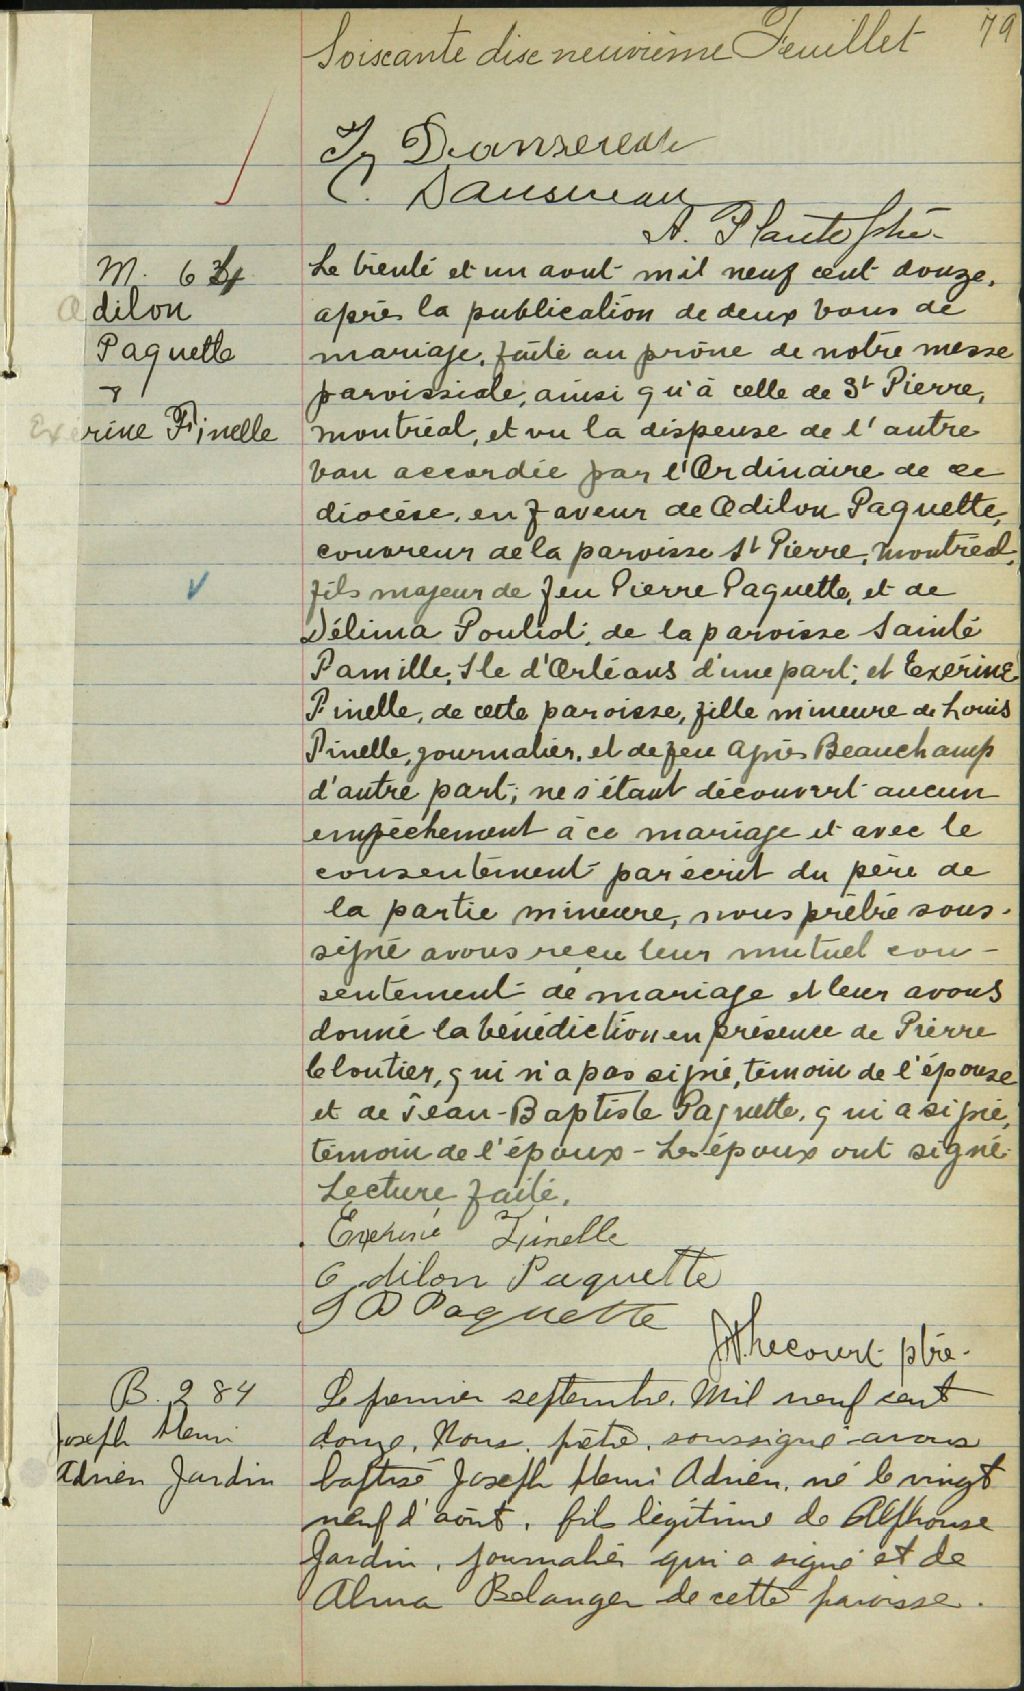 79
Soixante dix neuvième Feuillet
Dansereau
C. Dansereau
A. Plante ptre
M. 64
Odilon
Paquette
&
Exérine Pinelle
Le trente et un aout mil neuf cent douze,
après la publication de deux bans de
mariage, faite au prône de notre messe
paroissiale, ainsi qu'à celle de St Pierre,
montréal, et vu la dispense de l'autre
ban accordée par l'Ordinaire de ce
diocèse, en faveur de Odilon Paquette,
couvreur de la paroisse St Pierre, Montréal,
fils majeur de feu Pierre Paquette, et de
Délima Pouliot, de la paroisse Sainte
Famille, Ile d'Orléans d'une part; et Exérine
Pinelle, de cette paroisse, fille mineure de Louis
Pinelle, journalier, et de feu Agnès Beauchamp
d'autre part; ne s'étant découvert aucun
empêchement à ce mariage et avec le
consentement par écrit du père de
la partie mineure, nous prêtre sous-
signé avons reçu leur mutuel con-
sentement de mariage et leur avons
donné la bénédiction en présence de Pierre
Cloutier, qui n'a pas signé, témoin de l'épouse
et de Jean-Baptiste Paquette, qui a signé,
témoin de l'époux - Les époux ont signé.
Lecture faite.
Exérine Pinelle
Odilon Paquette
J B Paquette
Lecourt ptre.
B. 284
Joseph Henri
Adrien Jardin
Le premier septembre, Mil neuf cent
douze, Nous, prêtre, soussigné avons
baptisé Joseph Henri Adrien, né le vingt
neuf d'août, fils légitime de Alphonse
Jardin, journalier qui a signé et de
Alma Belanger de cette paroisse.